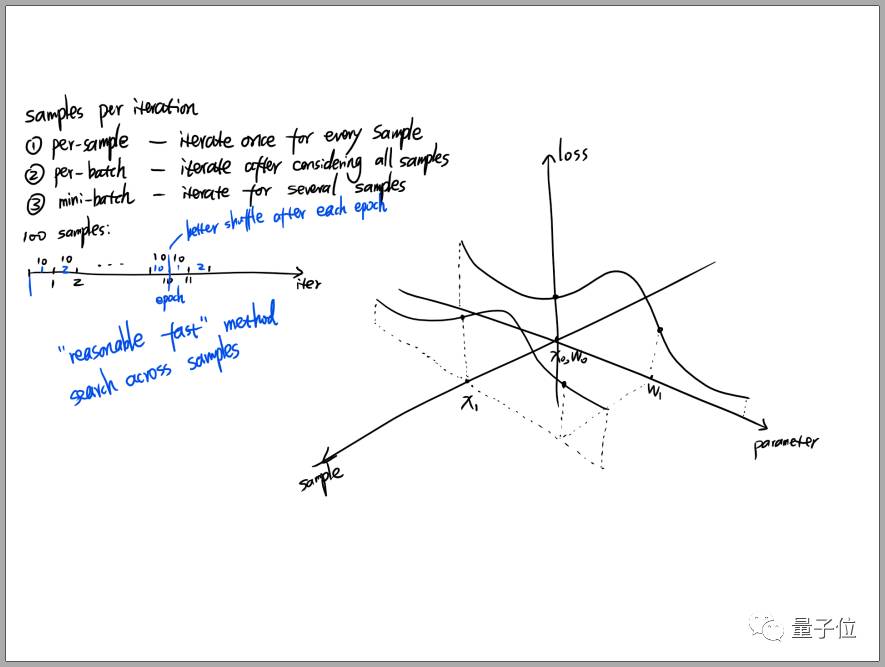 samples per iteration
① per-sample — iterate once for every sample
② per-batch — iterate after considering all samples
③ mini-batch — iterate for several samples
better shuffle after each epoch
100 samples:
10 10 ... 10 10
1 2 10 1 2
1 2 10 11
iter
epoch
"reasonable fast" method
search across samples
loss
x₀,w₀
x₁
w₁
parameter
sample
量子位